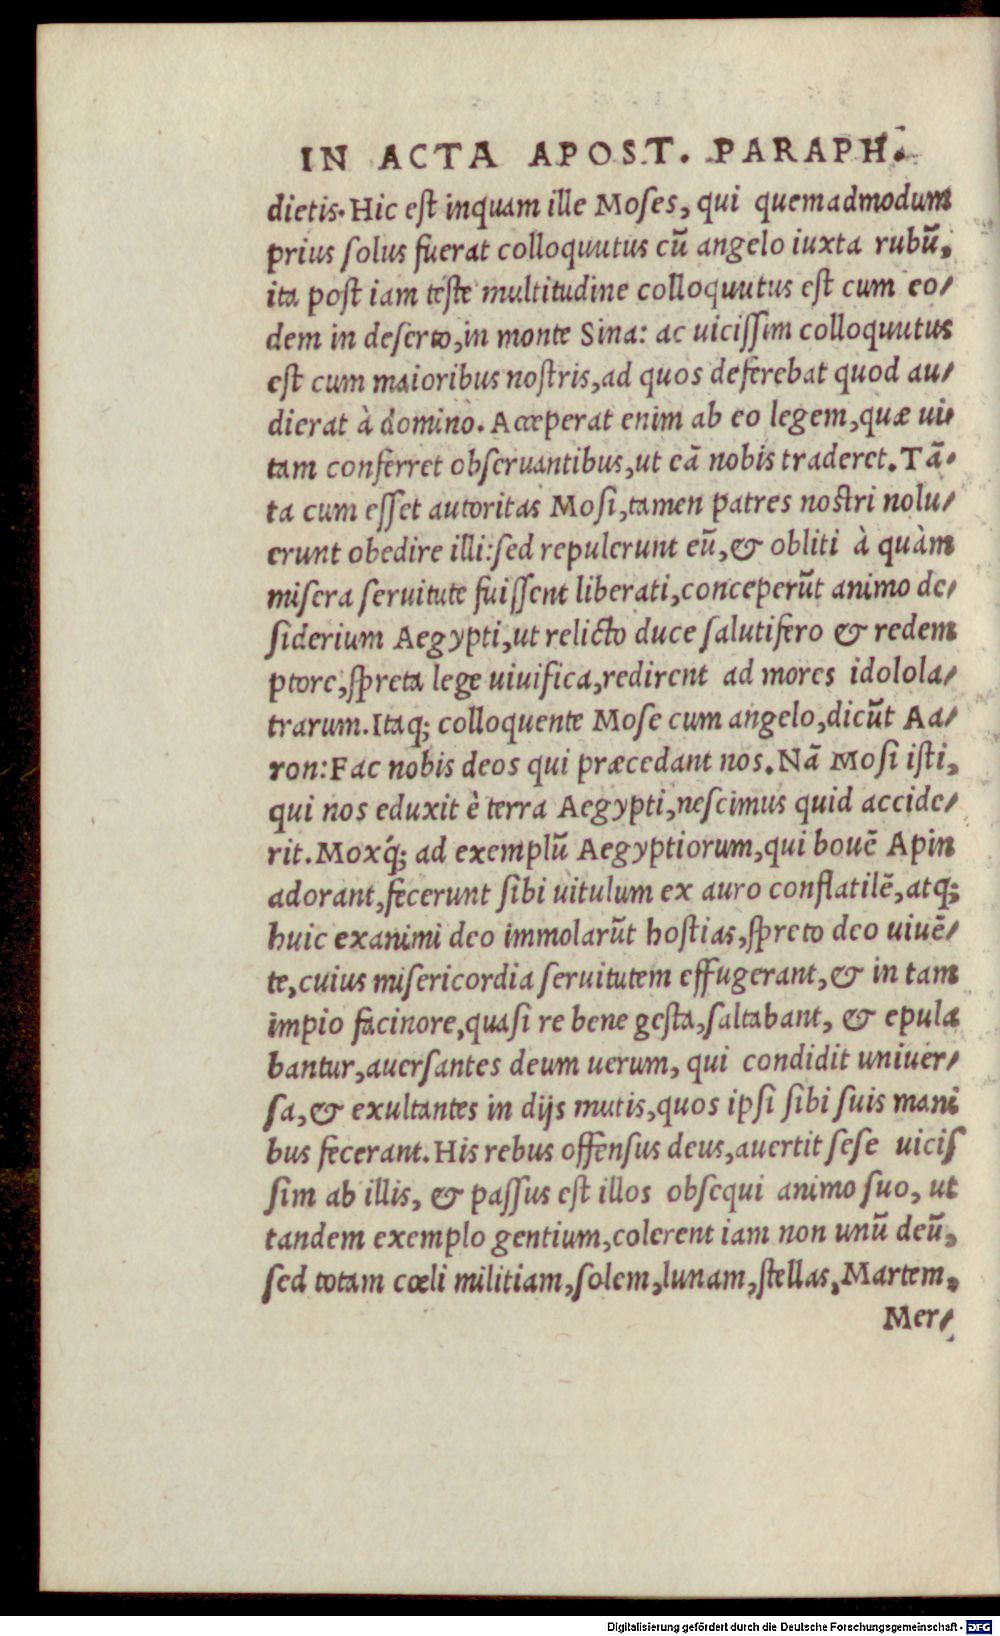 IN ACTA APOST. PARAPH.
dietis. Hic est inquam ille Moses, qui quemadmodum
prius solus fuerat colloquutus cũ angelo iuxta rubũ,
ita post iam teste multitudine colloquutus est cum eo/
dem in deserto, in monte Sina: ac uicissim colloquutus
est cum maioribus nostris, ad quos deferebat quod au/
dierat à domino. Acceperat enim ab eo legem, quæ ui/
tam conferret obseruantibus, ut eã nobis traderet. Tã/
ta cum esset autoritas Mosi, tamen patres nostri nolu/
erunt obedire illi: sed repulerunt eũ, & obliti à quàm
misera seruitute fuissent liberati, conceperũt animo de/
siderium Aegypti, ut relicto duce salutifero & redem
ptore, spreta lege uiuifica, redirent ad mores idolola/
trarum. Itaq; colloquente Mose cum angelo, dicũt Aa/
ron: Fac nobis deos qui præcedant nos. Nã Mosi isti,
qui nos eduxit è terra Aegypti, nescimus quid accide/
rit. Moxq́; ad exemplũ Aegyptiorum, qui bouẽ Apin
adorant, fecerunt sibi uitulum ex auro conflatilẽ, atq;
huic exanimi deo immolarũt hostias, spreto deo uiuẽ/
te, cuius misericordia seruitutem effugerant, & in tam
impio facinore, quasi re bene gesta, saltabant, & epula
bantur, auersantes deum uerum, qui condidit uniuer/
sa, & exultantes in dijs mutis, quos ipsi sibi suis mani
bus fecerant. His rebus offensus deus, auertit sese uicis
sim ab illis, & passus est illos obsequi animo suo, ut
tandem exemplo gentium, colerent iam non unũ deũ,
sed totam cœli militiam, solem, lunam, stellas, Martem,
Mer/
Digitalisierung gefördert durch die Deutsche Forschungsgemeinschaft - DFG